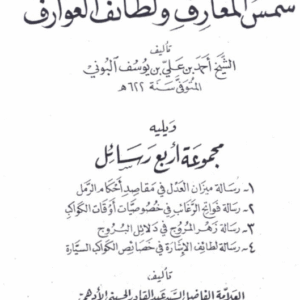 شمس المعارف ولطائف العوارف
تأليف
الشيخ أحمد بن علي بن يوسف البوني
المتوفى سنة ٦٢٢ هـ
ويليه
مجموعة أربع رسائل
١- رسالة ميزان العدل في مقاصد أحكام الرمل
٢- رسالة فواتح الرغائب في خصوصيات أوقات الكواكب
٣- رسالة زهر المروج في دلائل البروج
٤- رسالة لطائف الإشارة في خصائص الكواكب السيارة
تأليف
العلامة الفاضل السيد عبد القادر الحسيني الأدهمي